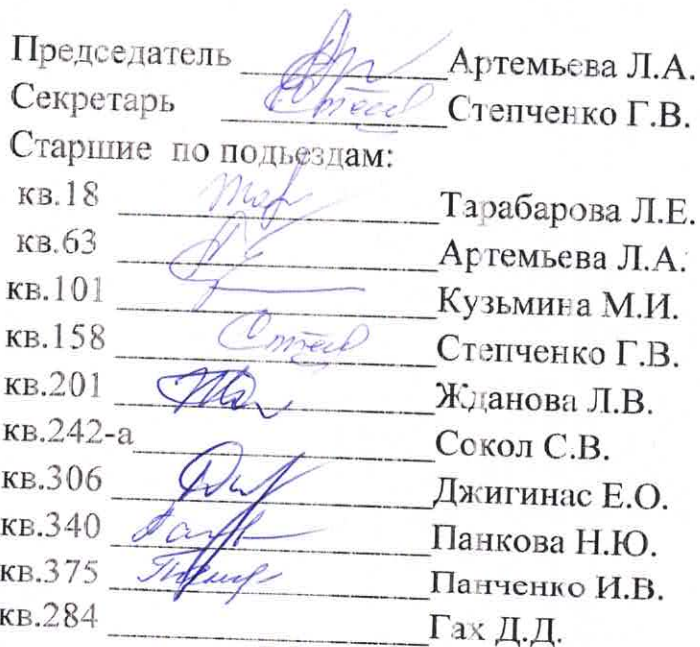 Председатель Артемьева Л.А.
Секретарь Степченко Г.В.
Старшие по подьездам:
кв.18 Тарабарова Л.Е.
кв.63 Артемьева Л.А.
кв.101 Кузьмина М.И.
кв.158 Степченко Г.В.
кв.201 Жданова Л.В.
кв.242-а Сокол С.В.
кв.306 Джигинас Е.О.
кв.340 Панкова Н.Ю.
кв.375 Панченко И.В.
кв.284 Гах Д.Д.